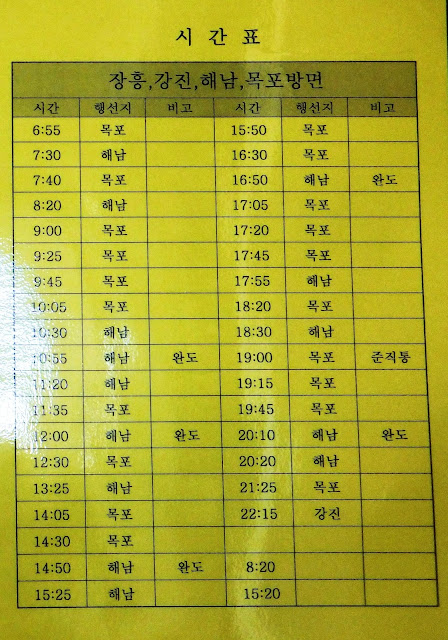 시 간 표
장흥,강진,해남,목포방면
시간 행선지 비고 시간 행선지 비고
6:55 목포 15:50 목포
7:30 해남 16:30 목포
7:40 목포 16:50 해남 완도
8:20 해남 17:05 목포
9:00 목포 17:20 목포
9:25 목포 17:45 목포
9:45 목포 17:55 해남
10:05 목포 18:20 목포
10:30 해남 18:30 해남
10:55 해남 완도 19:00 목포 준직통
11:20 해남 19:15 목포
11:35 목포 19:45 목포
12:00 해남 완도 20:10 해남 완도
12:30 목포 20:20 해남
13:25 해남 21:25 목포
14:05 목포 22:15 강진
14:30 목포
14:50 해남 완도 8:20
15:25 해남 15:20